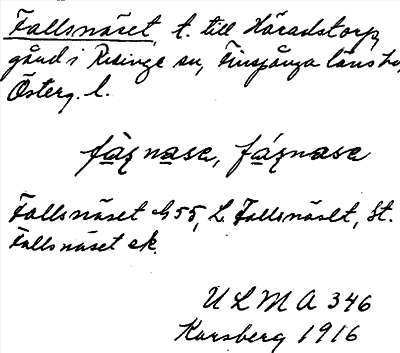 Fallsnäset, t. till Häradstorp,
gård i Risinge sn, Finspånga länshd,
Österg. l.
fàʒnasa, fáʒnasa
Fallsnäset G 55, L. Fallsnäset, St.
Fallsnäset ek.
ULMA 346
Karsberg 1916